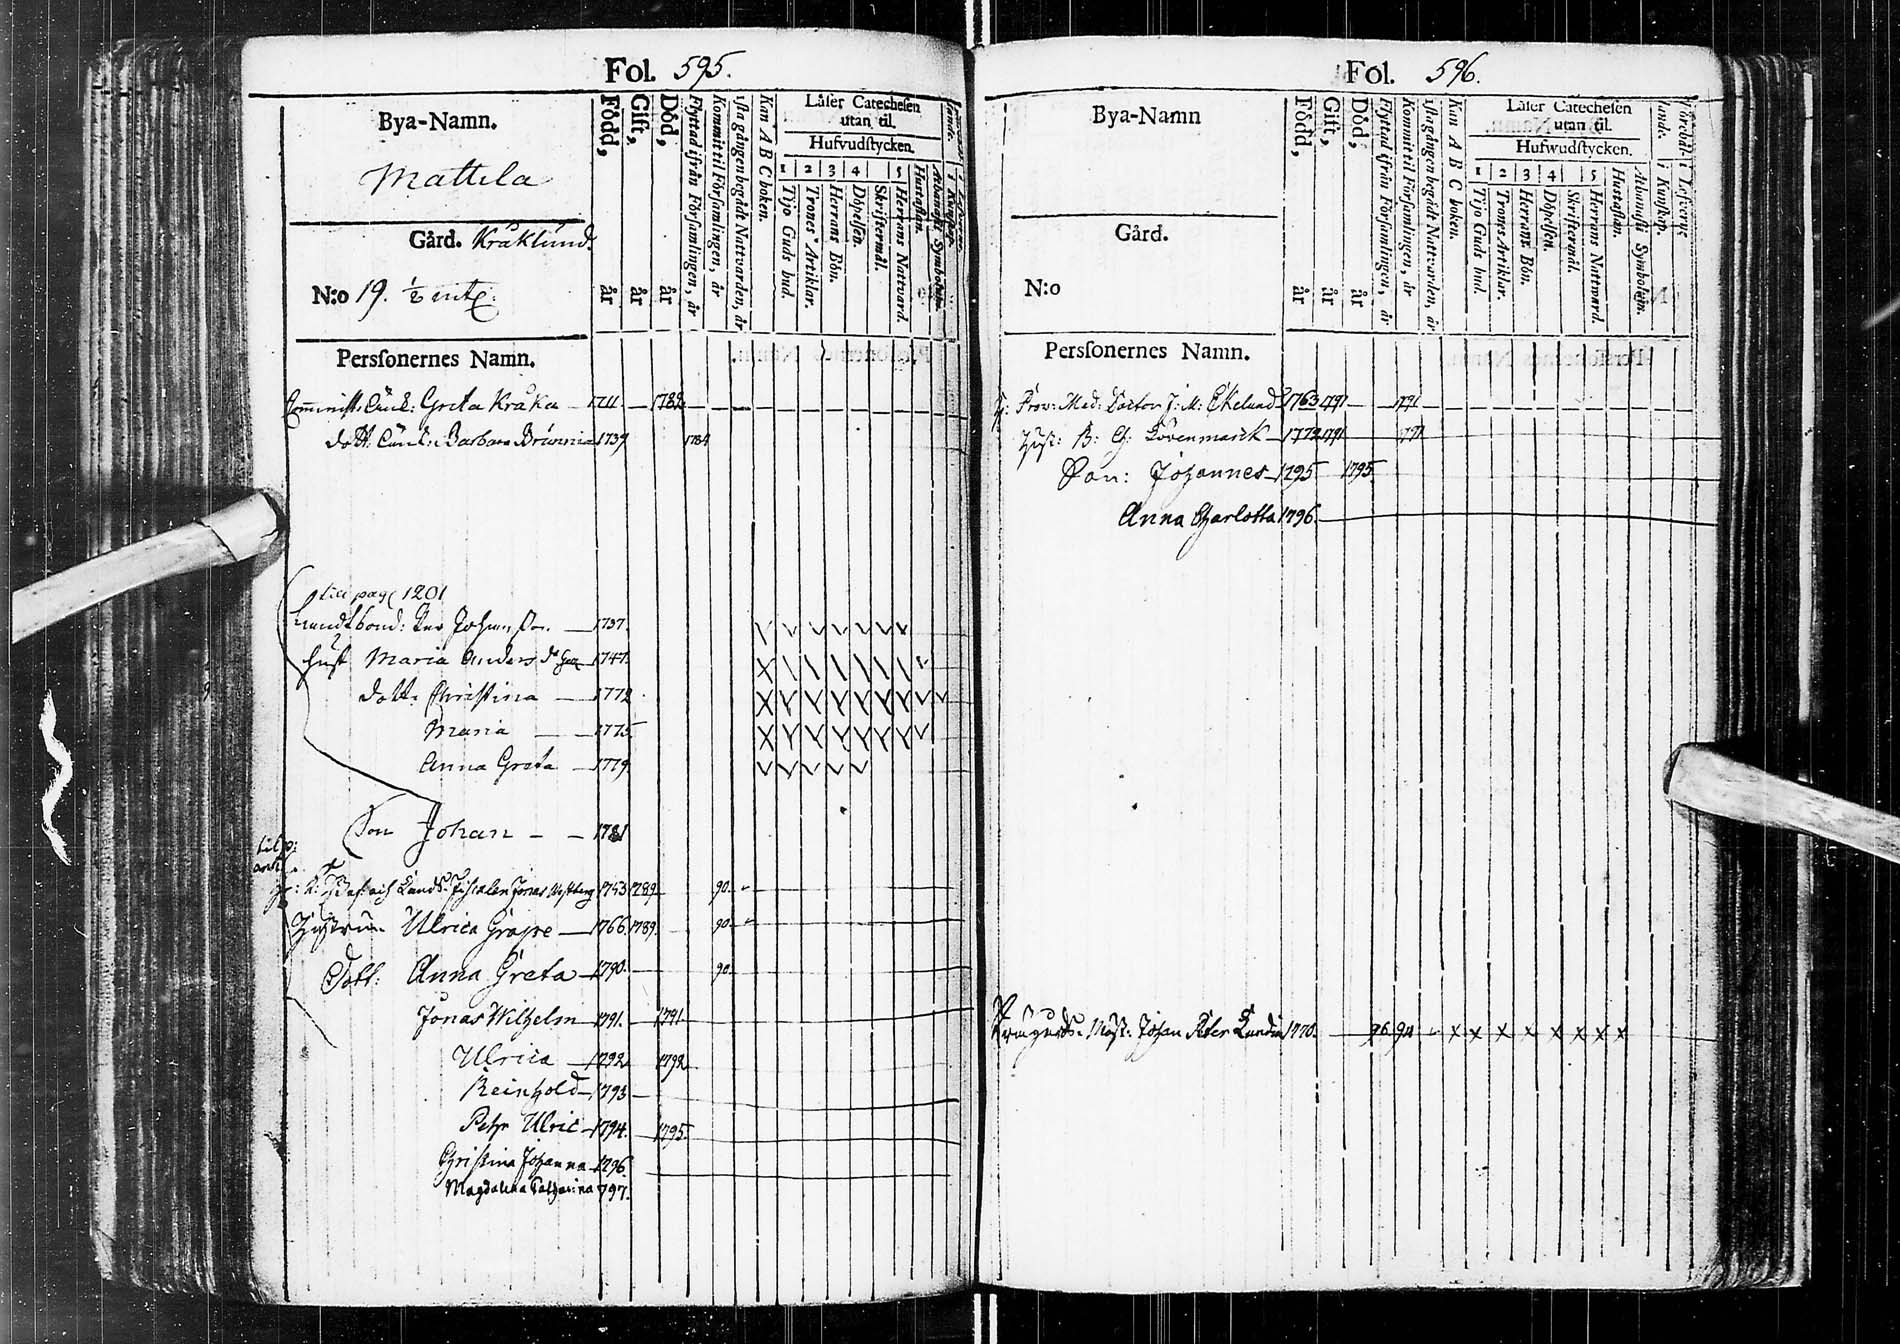 Fol. 595.
Bya-Namn.
Mattila
Gård. Kråklund.
N:o 19. 1/2 mtl:
Född, år
Gift, år
Död, år
Flyttad ifrån Församlingen, år
Kommit til Församlingen, år
ista gången begådt Nattvarden, år
Kan A B C boken.
Låser Catechesen
utan til.
Hufvudstycken.
1 2 3 4 5
Tijo Guds bud.
Trones Artiklar.
Herrans Bön.
Döpelsen.
Skriftermål.
Herrans Nattvard.
Hustaflan.
Athanasii Symbolum.
Persſonernes Namn.
Greta Kråka 1711 1782
dott: Barbara Brunnia 1739 1784
pag 1201
Per Johansson 1737.
Hust Maria Anders dr 1747.
dott. Christina 1772
Maria 1775
Anna Greta 1779
Son Johan 1781
Jonas 1753 1789 90.
Hustrun Ulrica Grape 1766. 1789. 90
Dott: Anna Greta 1790. 90
Jonas Wilhelm 1791. 1791
Ulrica 1792 1792
Reinhold 1793
Petr Ulric 1794. 1795.
Christina Johanna 1796.
Magdalena Catharina 797.
Fol. 596.
Bya-Namn
Gård.
N:o
Född, år
Gift, år
Död, år
Flyttad ifrån Församlingen, år
Kommit til Församlingen, år
ista gången begådt Nattvarden, år
Kan A B C boken.
Låser Catechesen
utan til.
Hufwudstycken.
1 2 3 4 5
Tijo Guds bud.
Trones Artiklar.
Herrans Bön.
Döpelsen.
Skriftermål.
Herrans Nattward.
Hustaflan.
Athanasii Symbolum.
i Kunskap.
i Lefverne
Persſonernes Namn.
Prov: Med: Doctor J: M: Ekelund 1763 1791 1791
Hust: B: Ch: Lövenmarck 1772 1791 1791
Son: Johannes 1795 1795
Anna Charlotta 1796.
Johan Peter Lundin 1770. 96 94